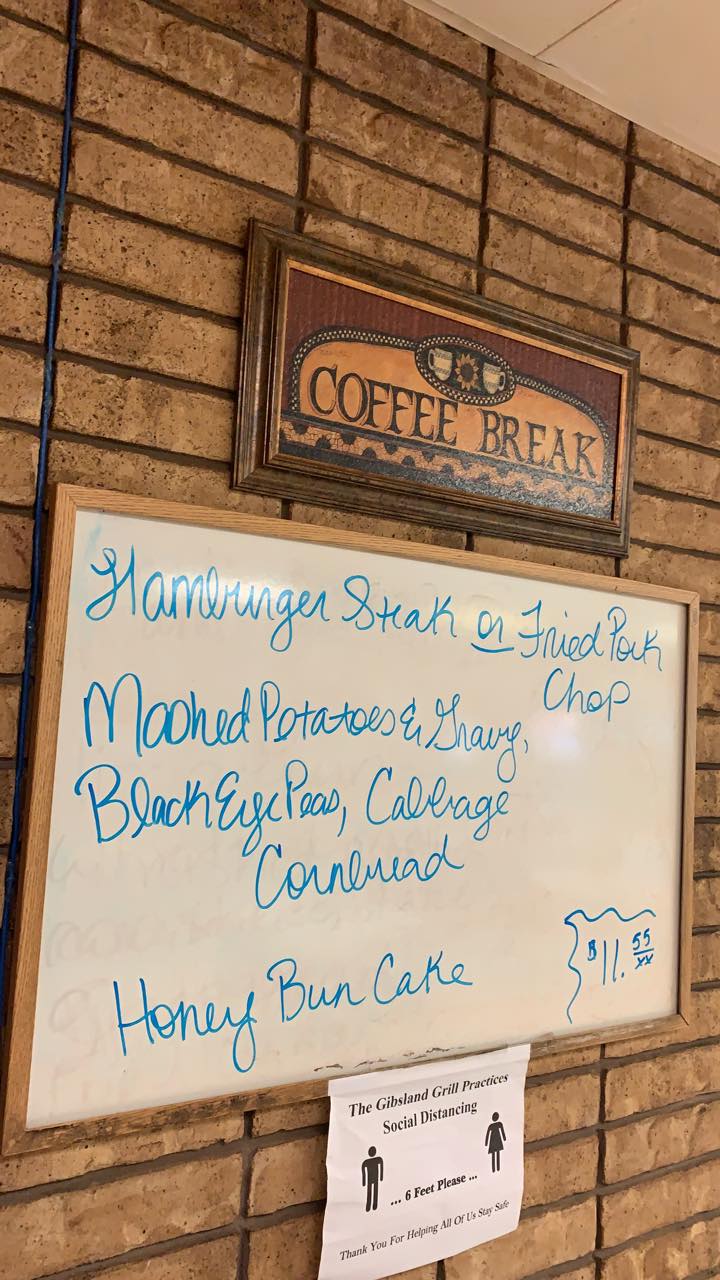 COFFEE BREAK
Hamburger Steak or Fried Pork
Chop
Mashed Potatoes & Gravy,
Black Eye Peas, Cabbage
Cornbread
Honey Bun Cake
$11.55/xx
The Gibsland Grill Practices
Social Distancing
... 6 Feet Please ...
Thank You For Helping All Of Us Stay Safe